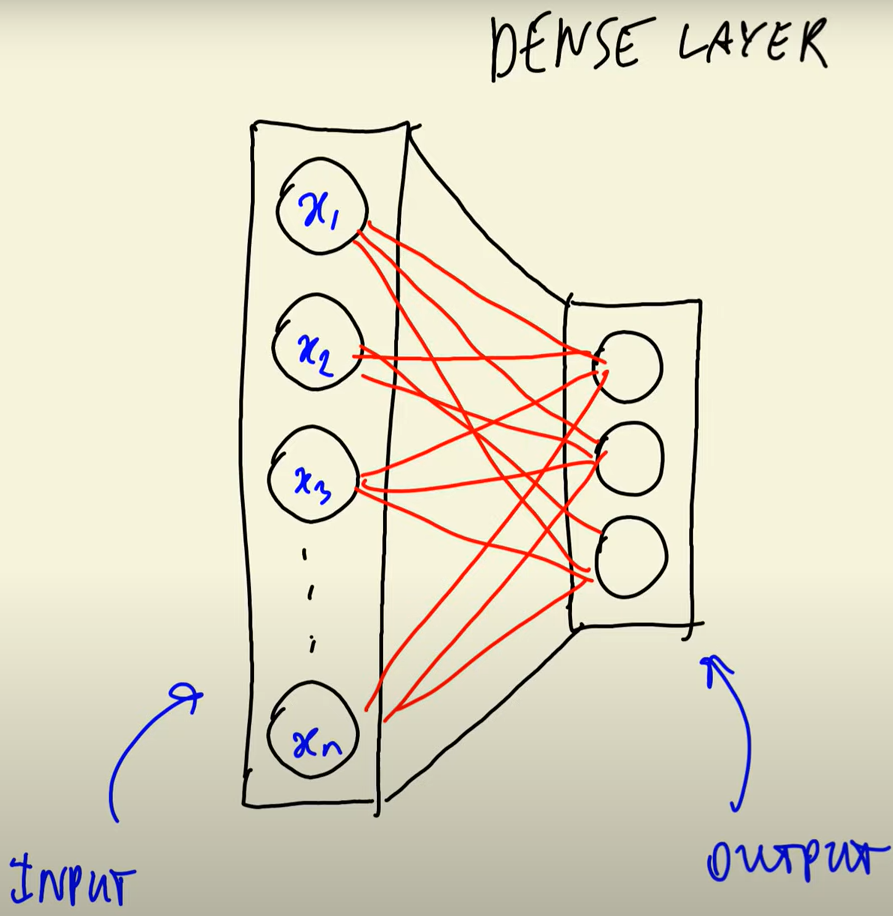 DENSE LAYER
x₁
x₂
x₃
xₙ
INPUT
OUTPUT